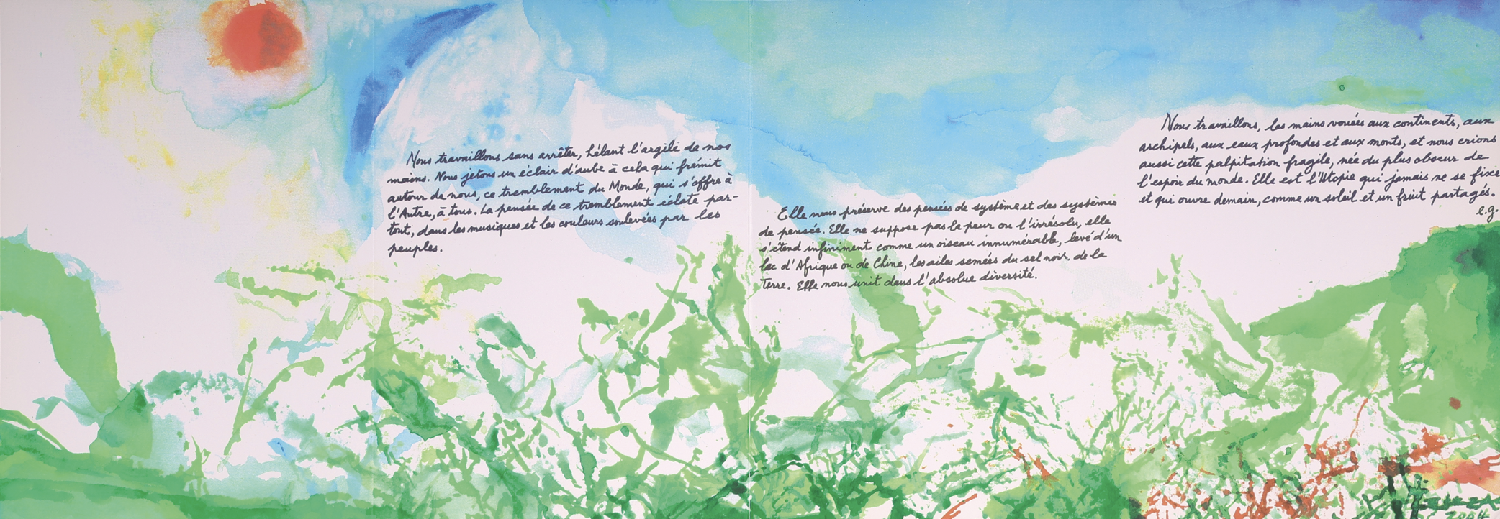 Nous travaillons sans arrêter, hélant l'argile de nos
mains. Nous jetons un éclair d'aube à cela qui frémit
autour de nous, ce tremblement du Monde, qui s'offre à
l'Autre, à tous. La pensée de ce tremblement éclate par-
tout, dans les musiques et les couleurs soulevées par les
peuples.
Elle nous préserve des pensées de système et des systèmes
de pensée. Elle ne suppose pas la peur ou l'irrésolu, elle
s'étend infiniment comme un oiseau innumérable, levé d'un
lac d'Afrique ou de Chine, les ailes semées du sel noir de la
terre. Elle nous unit dans l'absolue diversité.
Nous travaillons, les mains vouées aux continents, aux
archipels, aux eaux profondes et aux monts, et nous crions
aussi cette palpitation fragile, née du plus obscur de
l'espoir du monde. Elle est l'Utopie qui jamais ne se fixe
et qui ouvre demain, comme un soleil et un fruit partagés.
e.g.
2004